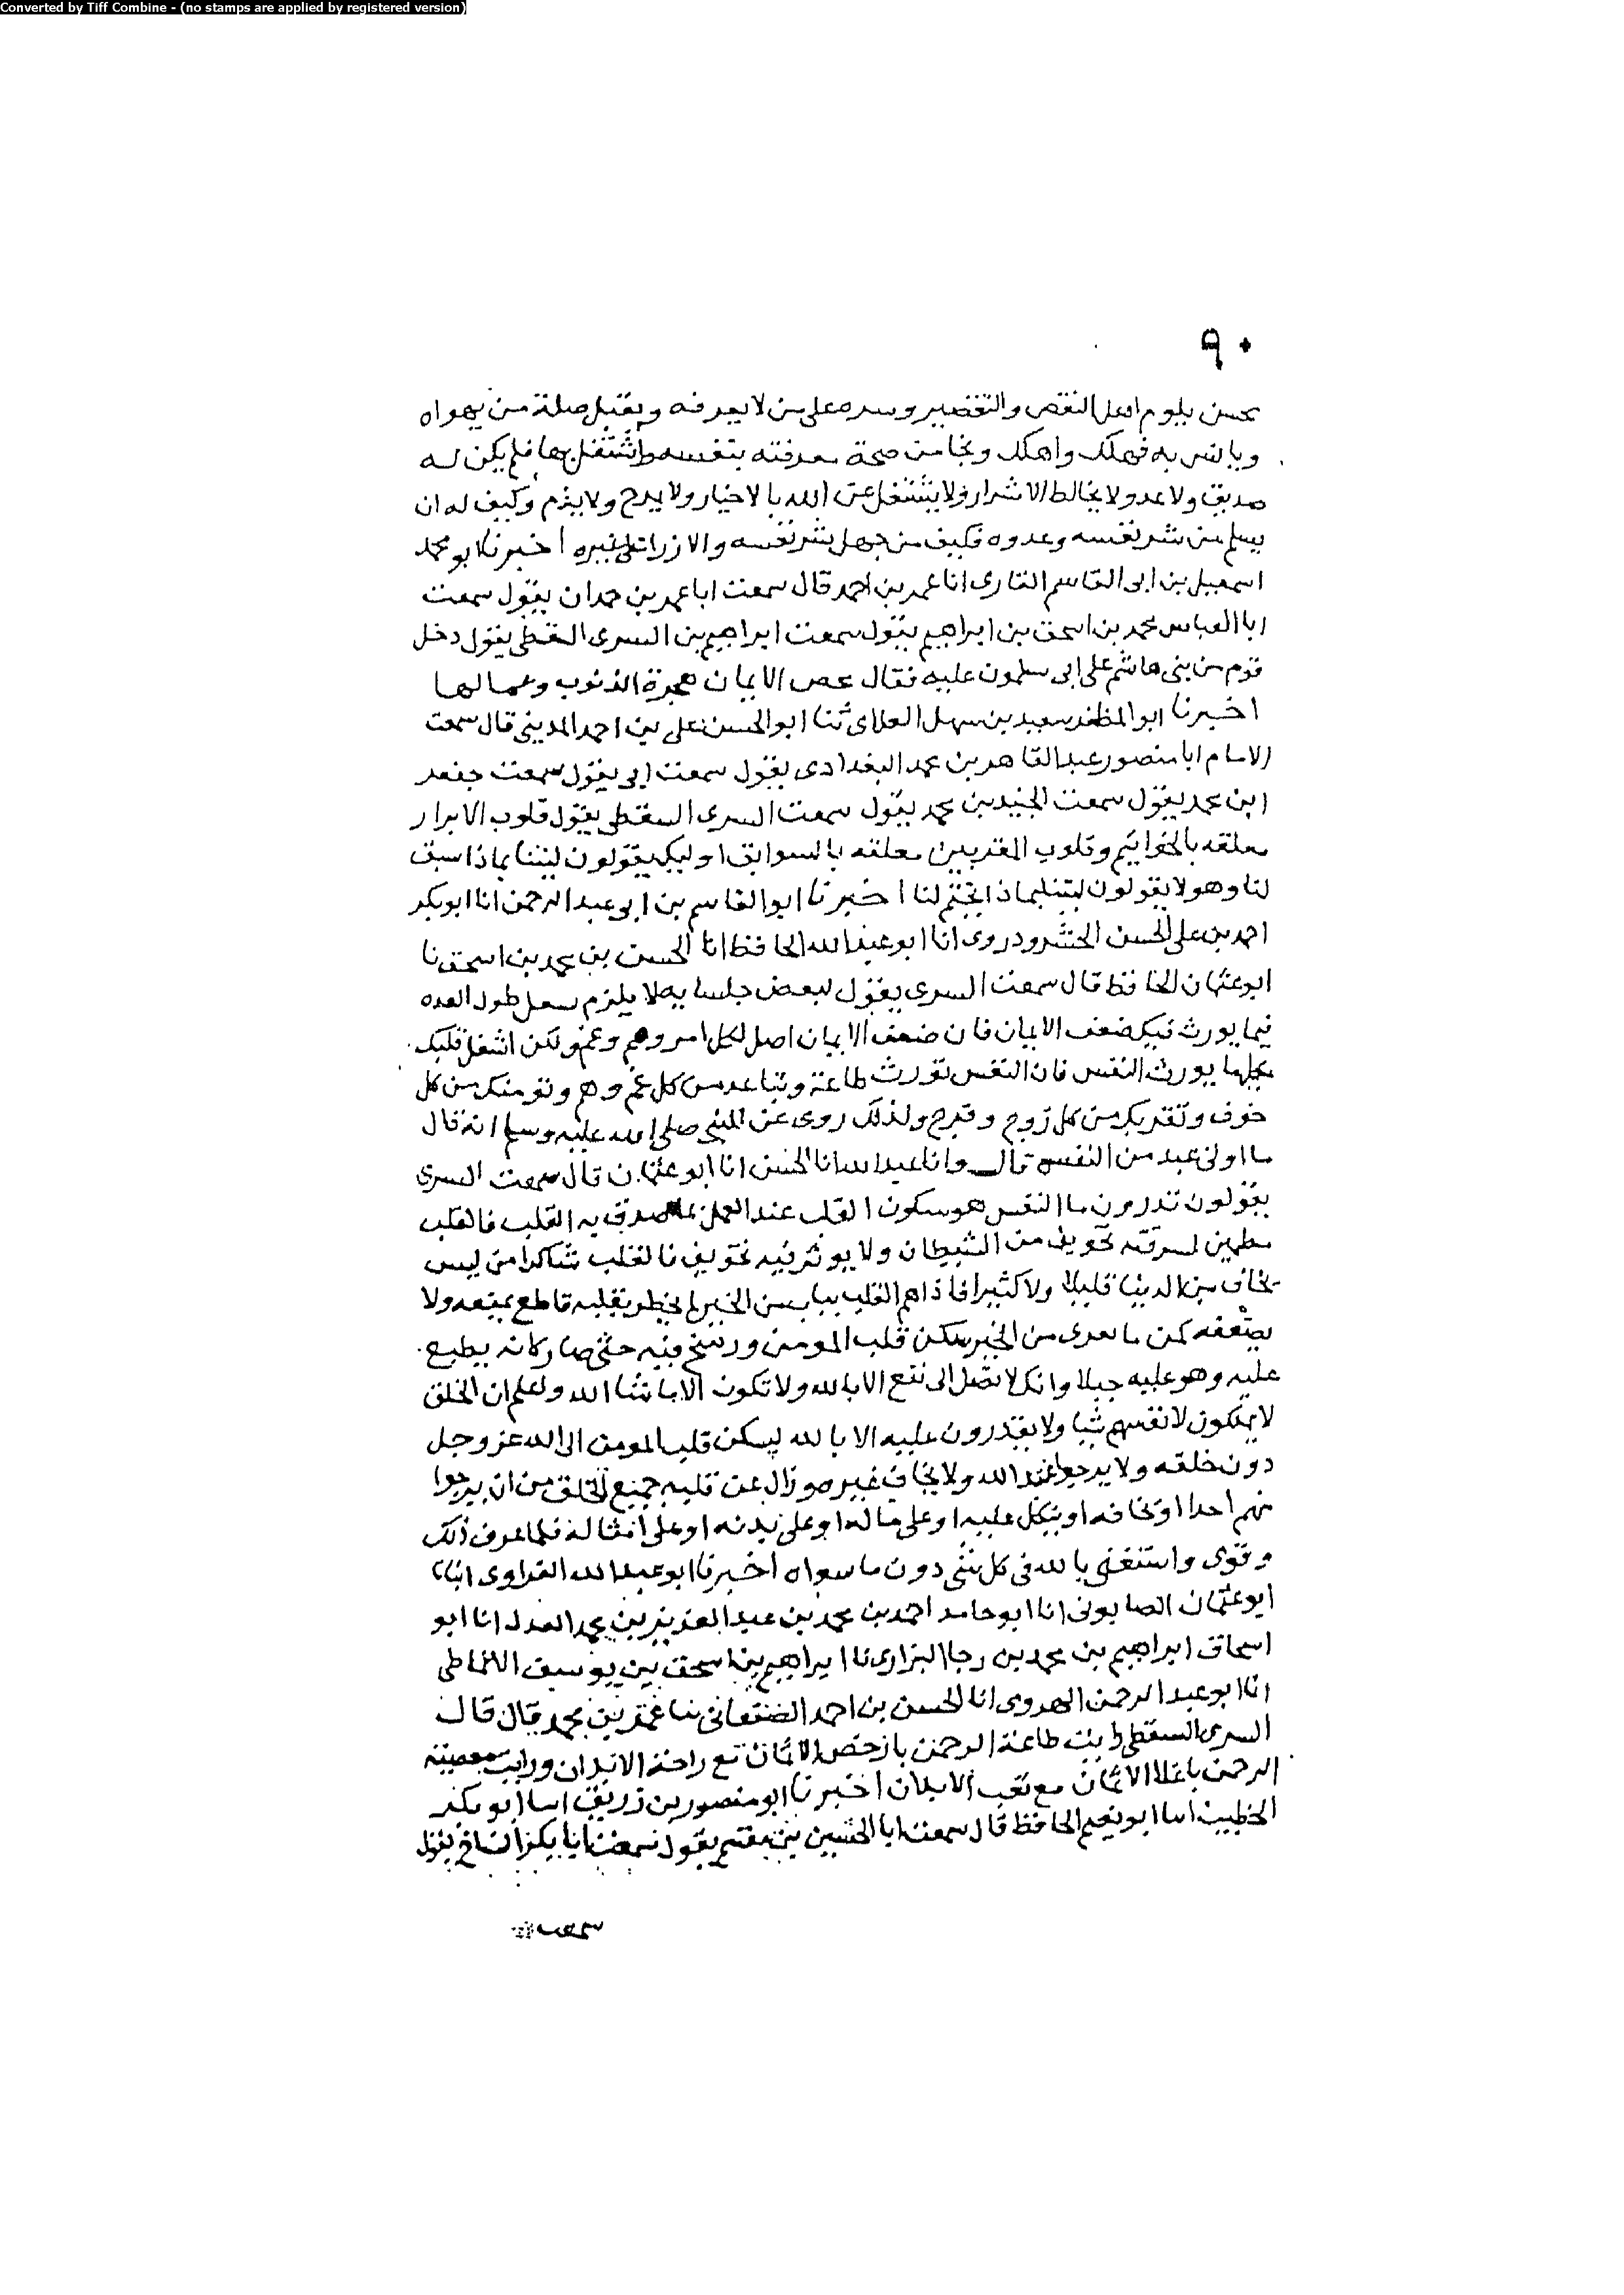 Converted by Tiff Combine - (no stamps are applied by registered version)
٩٠
بحسن يلوم اهل النقص والتقصير وسره على من لا يعرفه ويقبل صلة من يهواه
ويانس به فهلك واهلك ونجا من صحة معرفته بنفسه واشتغل بها فلم يكن له
صديق ولا عدو ولا يخالط الاشرار ولا يشتغل عن الله بالاخيار ولا يمدح ولا يذم وكيف له ان
يسلم من شر نفسه وعدوه فكيف من جهل بشر نفسه والازرا على غيره اخبرنا ابو محمد
اسمعيل بن ابى القاسم القارى انا عمر بن احمد قال سمعت ابا عمر بن حمدان يقول سمعت
ابا العباس محمد بن اسحق بن ابراهيم يقول سمعت ابراهيم بن السرى السقطى يقول دخل
قوم من بنى هاشم على ابى يسلمون عليه فقال محص الايمان هجرة الذنوب وعمالها
اخبرنا ابو المظفر سعيد بن سهل الفلاى ثنا ابو الحسن على بن احمد المدينى قال سمعت
الامام ابا منصور عبد القاهر بن محمد البغدادى يقول سمعت ابى يقول سمعت جعفر
ابن محمد يقول سمعت الجنيد بن محمد يقول سمعت السرى السقطى يقول قلوب الابرار
معلقه بالخواتيم وقلوب المقربين معلقه بالسوابق اوليك يقولون ليتنا بماذا سبق
لنا وهولا يقولون ليتنا بماذا يختم لنا اخبرنا ابو القاسم بن ابى عبد الرحمن انا ابو بكر
احمد بن على الحسن الخشرودروى انا ابو عبد الله الحافظ انا الحسن بن محمد بن اسحق نا
ابو عثمان الحافظ قال سمعت السرى يقول لبعض جلسايه لا يلزم طول الفده
فيما يورث فيك ضعف الايمان فان ضعف الايمان اصل لكل امر وهم وغم ولكن اشغل قلبك
بكلما يورث النفس فان النفس تورث طاعة وتباعد من كل غم وهم وتومنك من كل
خوف وتقربك من كل روح وفرح ولذلك روى عن النبى صلى الله عليه وسلم انه قال
ما اوتى عبد من النفس قال وانا عبد الله انا الحسن انا ابو عثمان قال سمعت السرى
يقول تدرون ما النفس هو سكون القلب عند العمل بما صدق به القلب فالقلب
مطمين تخويف من الشيطان ولا يوثر فيه تخويف فالقلب شاكرا من ليس
يخاف من الدنيا قليلا ولا كثيرا فاذا هم القلب بباب من الخير لم يخطر بقلبه قاطع يمنعه ولا
يضعفه من الخير سكن قلب المومن ورسخ فيه حتى صار كانه يطبع
عليه وهو عليه جبلا وانك لا تصل الى نفع الا بالله ولا تكون الا ما شا الله واعلم ان الخلق
لا يملكون لانفسهم شيا ولا يقدرون عليه الا بالله ليسكن قلب المومن الى الله عز وجل
دون خلقه ولا يرجوا غير الله ولا يخاف غيره وزال عن قلبه جميع الخلق من ان يرجوا
منهم احدا او يخافه او يتكل عليه او على ماله او على بدنه او على امثاله فلما عرف ذلك
وقوى واستغنى بالله فى كل شى دون ما سواه اخبرنا ابو عبد الله الفراوى انبا
ابو عثمان الصابونى انا ابو حامد احمد بن محمد بن عبد العزيز بن محمد العدل انا ابو
اسحاق ابراهيم بن محمد بن رجا البزارى نا ابراهيم بن اسحق بن يوسف الانماطى
انا ابو عبد الرحمن الهروى انا الحسن بن احمد الصنعانى ثنا عمر بن محمد قال قال
السرى السقطى رايت طاعة الرحمن بارخص الاثمان مع راحة الابدان ورايت معصية
الرحمن باغلا الاثمان مع تعب الابدان اخبرنا ابو منصور بن زريق انبا ابو بكر
الخطيب انبا ابو نعيم الحافظ قال سمعت ابا الحسين بن مقسم يقول سمعت ابا بكر يقول
سمعت